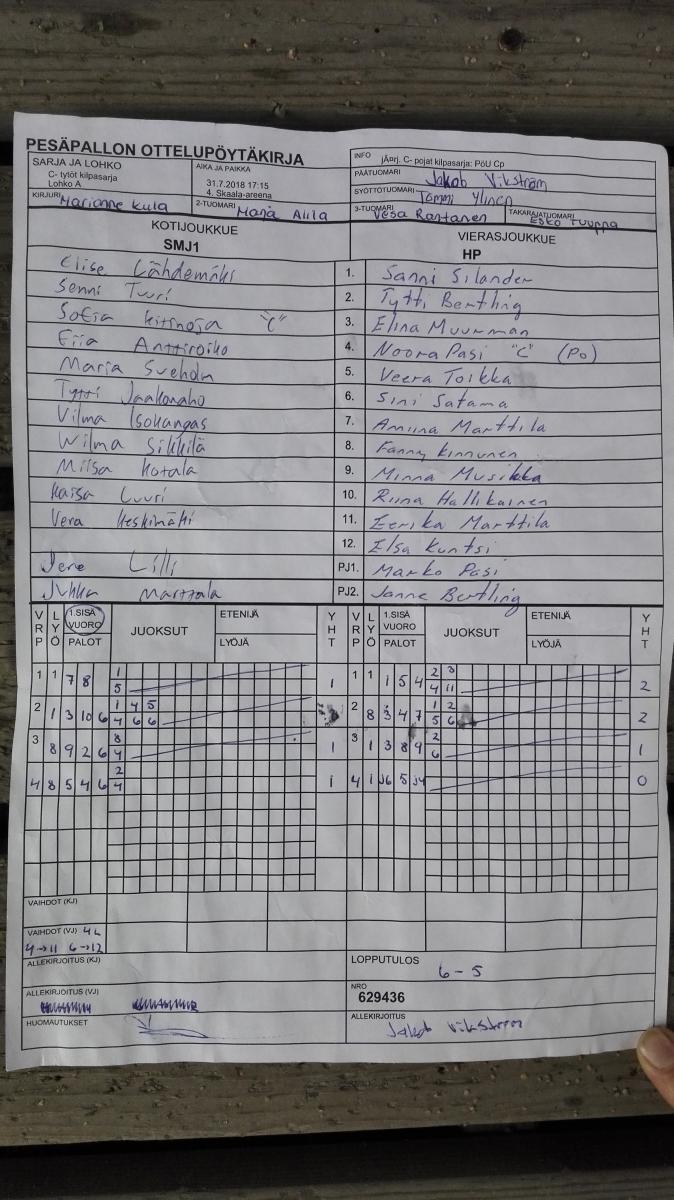 PESÄPALLON OTTELUPÖYTÄKIRJA
SARJA JA LOHKO
C- tytöt kilpasarja
Lohko A
AIKA JA PAIKKA
31.7.2018 17:15
4. Skaala-areena
INFO jÄ¤rj. C- pojat kilpasarja: PöU Cp
PÄÄTUOMARI Jakob Vikström
SYÖTTÖTUOMARI Tommi Ylinen
KIRJURI Marianne Kula
2-TUOMARI Marja Alila
3-TUOMARI Vesa Rantanen
TAKARAJATUOMARI Esko Tuuppa
KOTIJOUKKUE
SMJ1
VIERASJOUKKUE
HP
Elise Lähdemäki 1. Sanni Silander
Senni Tuuri 2. Tytti Bertling
Sofia Kitinoja "C" 3. Elina Muurman
Eiia Anttiroiko 4. Noora Pasi "C" (PO)
Maria Sveholm 5. Veera Toikka
Tytti Jaakonaho 6. Sini Satama
Vilma Isokangas 7. Amiina Marttila
Wilma Sikkilä 8. Fanny Kinnunen
Milsa Kotala 9. Minna Musikka
Kaisa Luuri 10. Riina Hallikainen
Vera Keskimäki 11. Eerika Marttila
12. Elsa Kuntsi
Jere Lilli PJ1. Marko Pasi
Jukka Marttala PJ2. Janne Bertling
VRP LYÖ 1.SISÄ VUORO PALOT JUOKSUT ETENIJÄ LYÖJÄ YHT VRP LYÖ 1.SISÄ VUORO PALOT JUOKSUT ETENIJÄ LYÖJÄ YHT
1 1 7 8 1 1 1 1 1 5 4 2 3 2
5 4 11
2 1 3 10 6 1 4 5 2 8 3 4 7 1 2 2
4 6 6 5 6
3 8 9 2 6 8 1 3 1 3 8 9 2 1
4 6
4 8 5 4 6 2 1 4 1 J6 5 J4 0
4
VAIHDOT (KJ)
VAIHDOT (VJ) 4L
4→11 6→12
ALLEKIRJOITUS (KJ)
LOPPUTULOS
6 - 5
ALLEKIRJOITUS (VJ)
NRO
629436
HUOMAUTUKSET
ALLEKIRJOITUS
Jakob Vikström